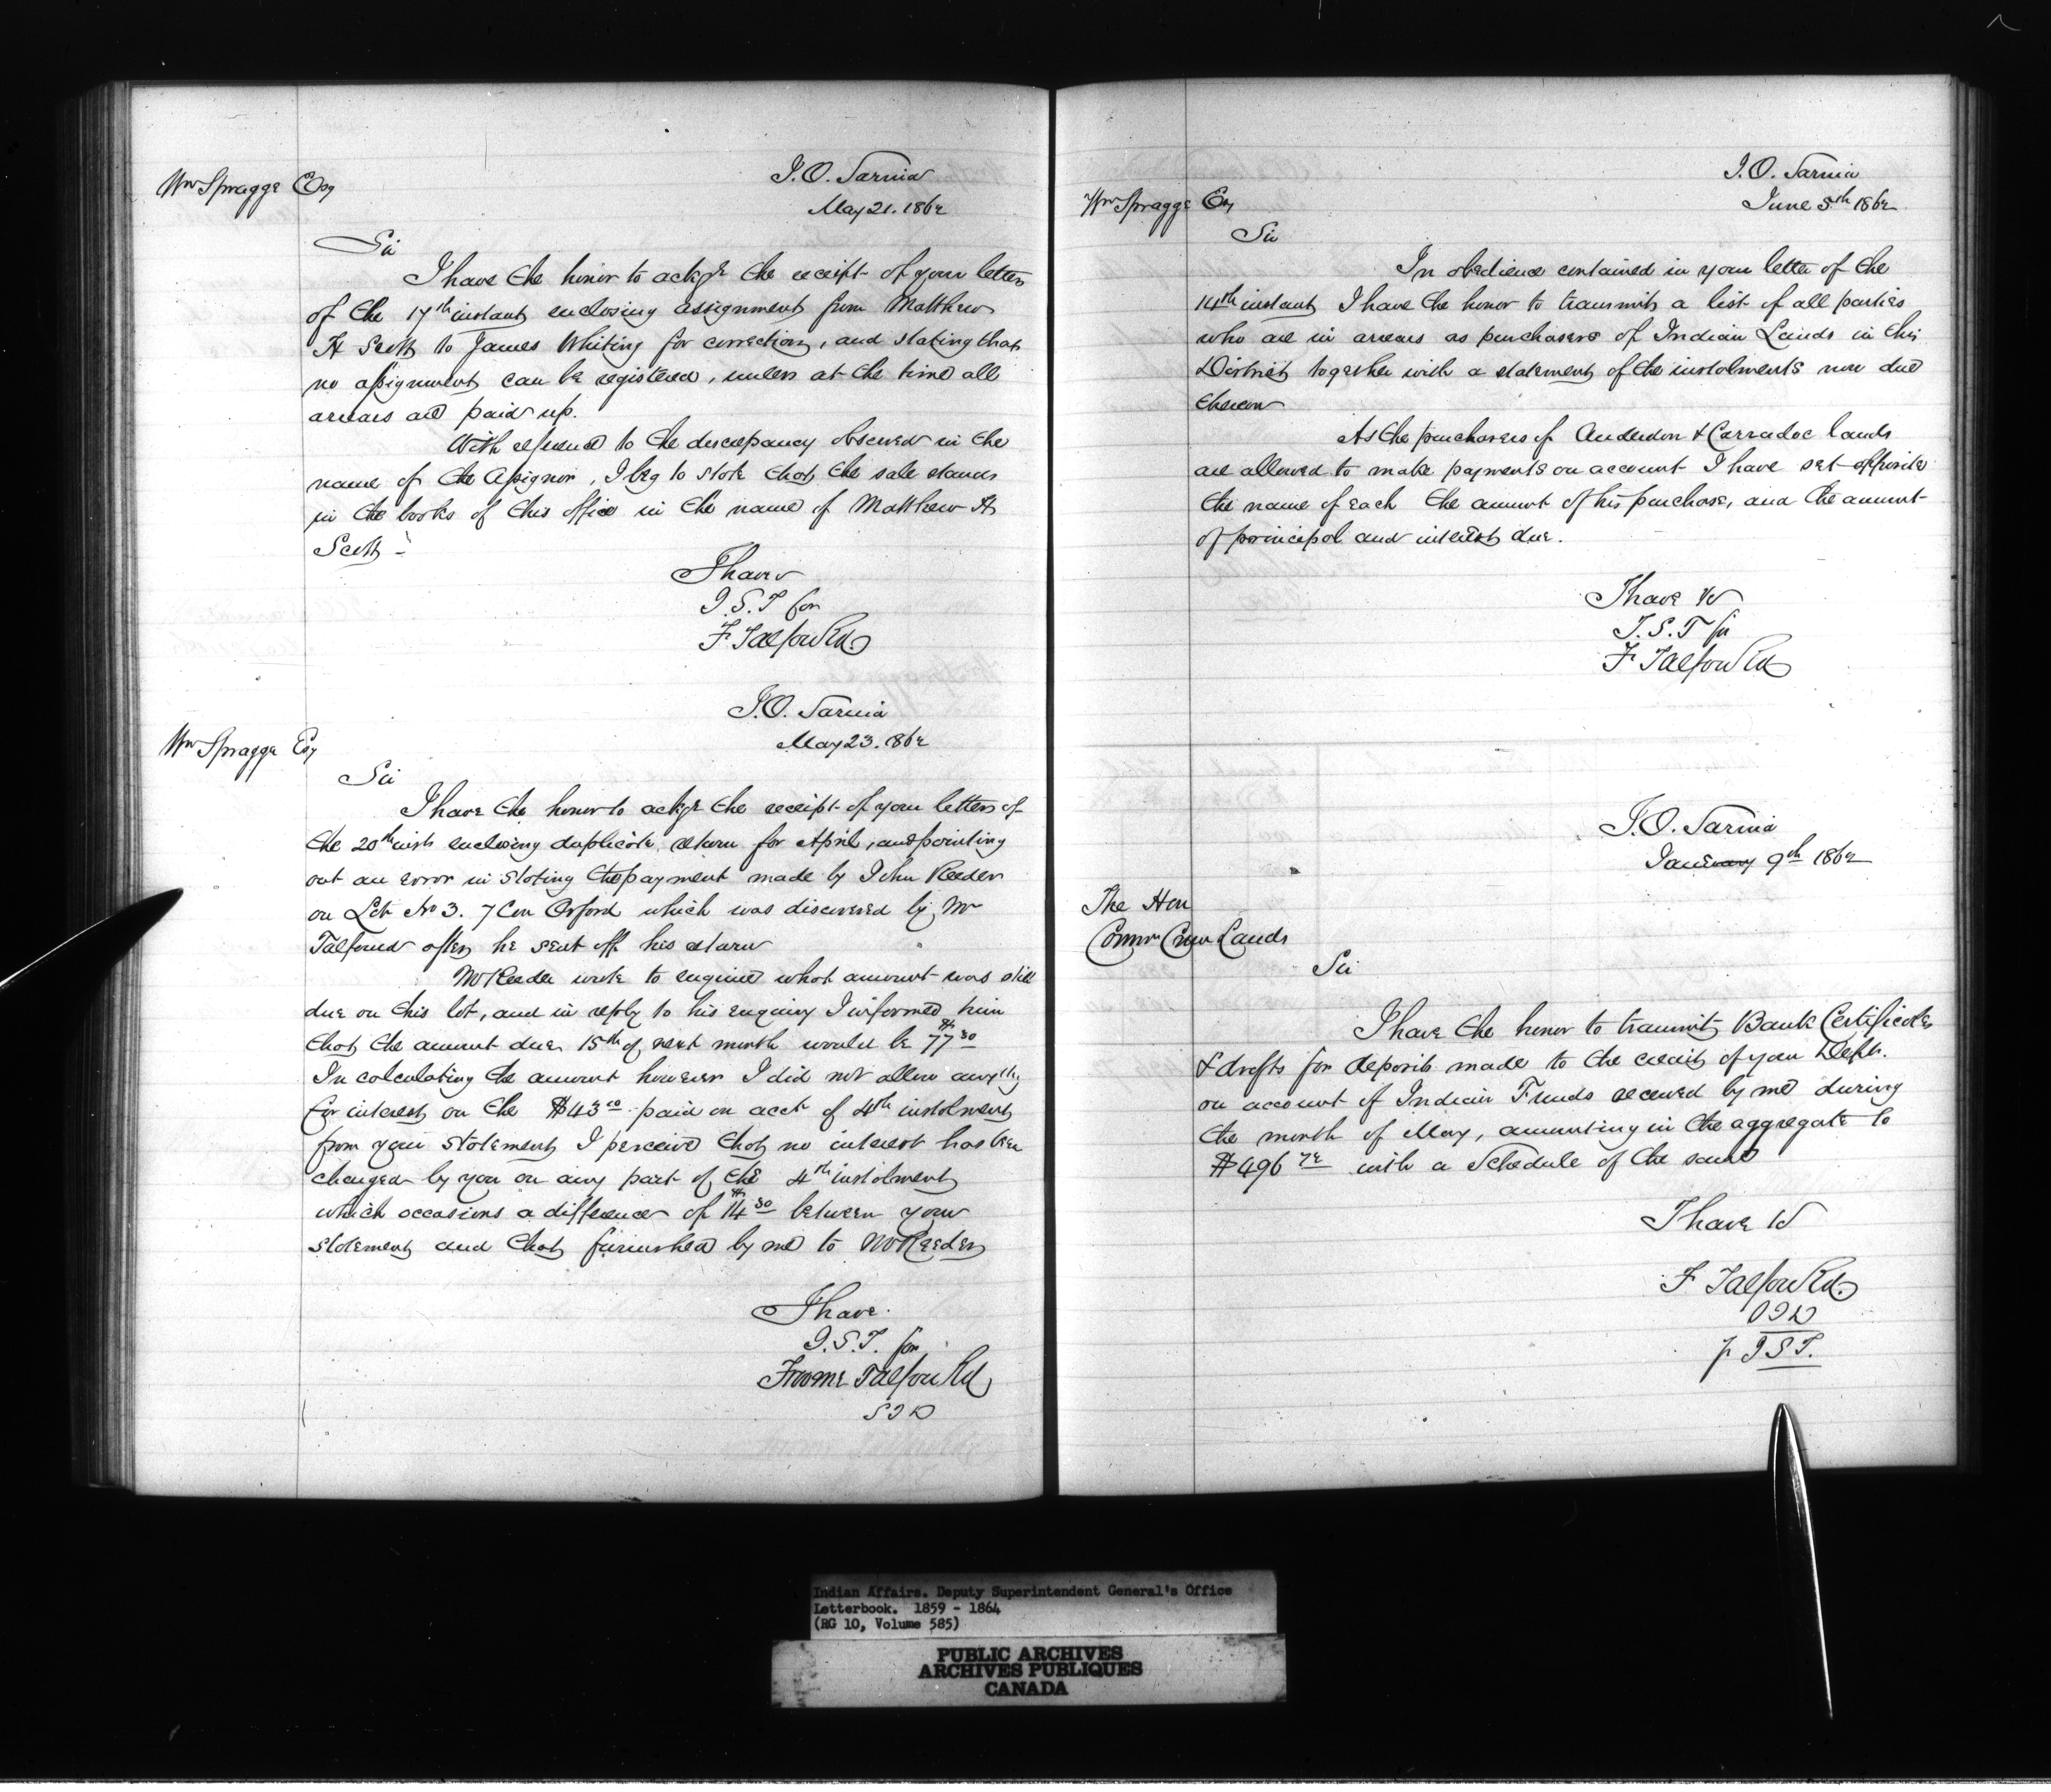 I.O. Sarnia
May 21. 1862
Wm Spragge Esq
Sir
I have the honor to ackge the receipt of your letter
of the 17th instant enclosing assignment from Matthew
H Scott to James Whiting for correction, and stating that
no assignment can be registered, unless at the time all
arrears are paid up.
With reference to the discrepancy observed in the
name of the Assignor, I beg to state that the sale stands
in the books of this office in the name of Matthew H
Scott -
I have
I.S.T for
F Talfourd
I.O. Sarnia
May 23. 1862
Wm Spragge Esq
Sir
I have the honor to ackge the receipt of your letters of
the 20th inst enclosing duplicate return for April, and pointing
out an error in stating the payment made by John Reeder
on Lot No 3. 7 Con Orford which was discovered by Mr
Talfourd after he sent off his return
Mr Reeder wrote to enquire what amount was still
due on this lot, and in reply to his enquiry I informed him
that the amount due 15th of next month would be $77 30
In calculating the amount however I did not allow anything
for interest on the $43 10 paid on acct of 4th instolment
from your statement I perceive that no interest has been
charged by you on any part of the 4th instolment
which occasions a difference of $14 30 between your
statement and that furnished by me to Mr Reeder
I have.
I.S.T. for
Froome Talfourd
S I D
I.O. Sarnia
June 5th 1862
Wm Spragge Esq
Sir
In obedience contained in your letter of the
14th instant I have the honor to transmit a list of all parties
who are in arrears as purchasers of Indian Lands in this
District together with a statement of the instolments now due
thereon
As the purchasers of Anderdon & Carradoc lands
are allowed to make payments on account I have set opposite
the name of each the amount of his purchase, and the amount
of principal and interest due.
I have &c
I.S.T for
F Talfourd
I.O. Sarnia
January 9th 1862
The Hon
Commr Crown Lands
Sir
I have the honor to transmit Bank Certificates
& drafts for deposits made to the credit of your Dept.
on account of Indian Funds received by me during
the month of May, amounting in the aggregate to
$496 72 with a Schedule of the same
I have &c
F Talfourd.
p I S T.
Indian Affairs. Deputy Superintendent General's Office
Letterbook. 1859 - 1864
(RG 10, Volume 585)
PUBLIC ARCHIVES
ARCHIVES PUBLIQUES
CANADA